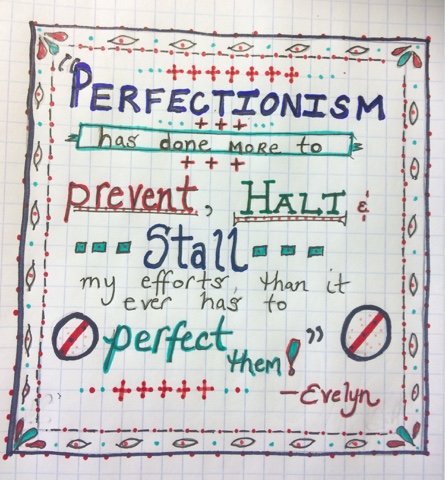 "PERFECTIONISM
has done MORE to
prevent, HALT &
Stall
my efforts, than it
ever has to
perfect
them!"
—Evelyn